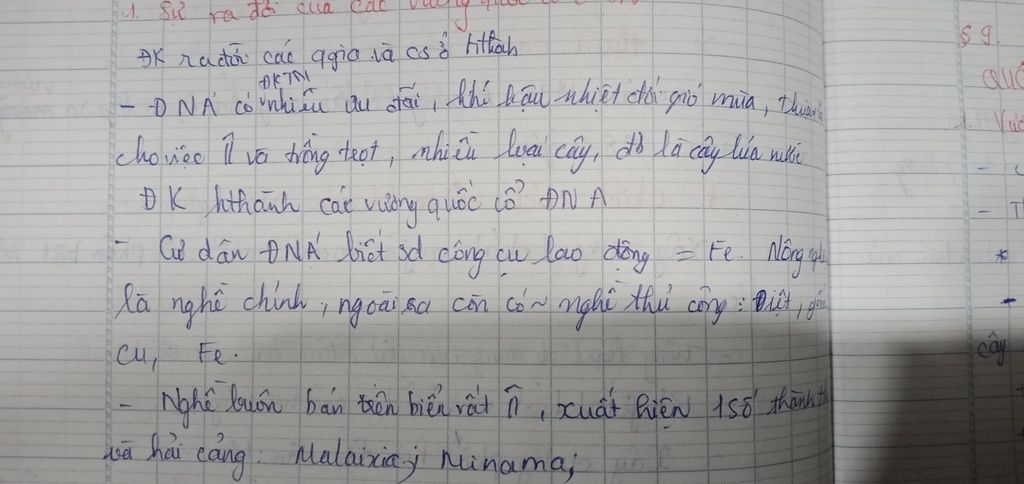 1. Sự ra đời của các vương quốc cổ
ĐK ra đời các qgia và cs ở hthành
ĐKTN
- ĐNÁ có nhiều ưu đãi, khí hậu nhiệt đới gió mùa, thuận
cho việc và trồng trọt, nhiều loại cây, đb là cây lúa nước
ĐK hthành các vương quốc cổ ĐNA
- Cư dân ĐNÁ biết sd công cụ lao động = Fe. Nông
là nghề chính, ngoài ra còn có ~ nghề thủ công: Dệt, gốm
cu, Fe.
- Nghề buôn bán trên biển rất , xuất hiện 1 số thành th
và hải cảng: Malaixia; Minama;
§ 9.
QUỐ
1. Vươ
-
- T
*
-
cây